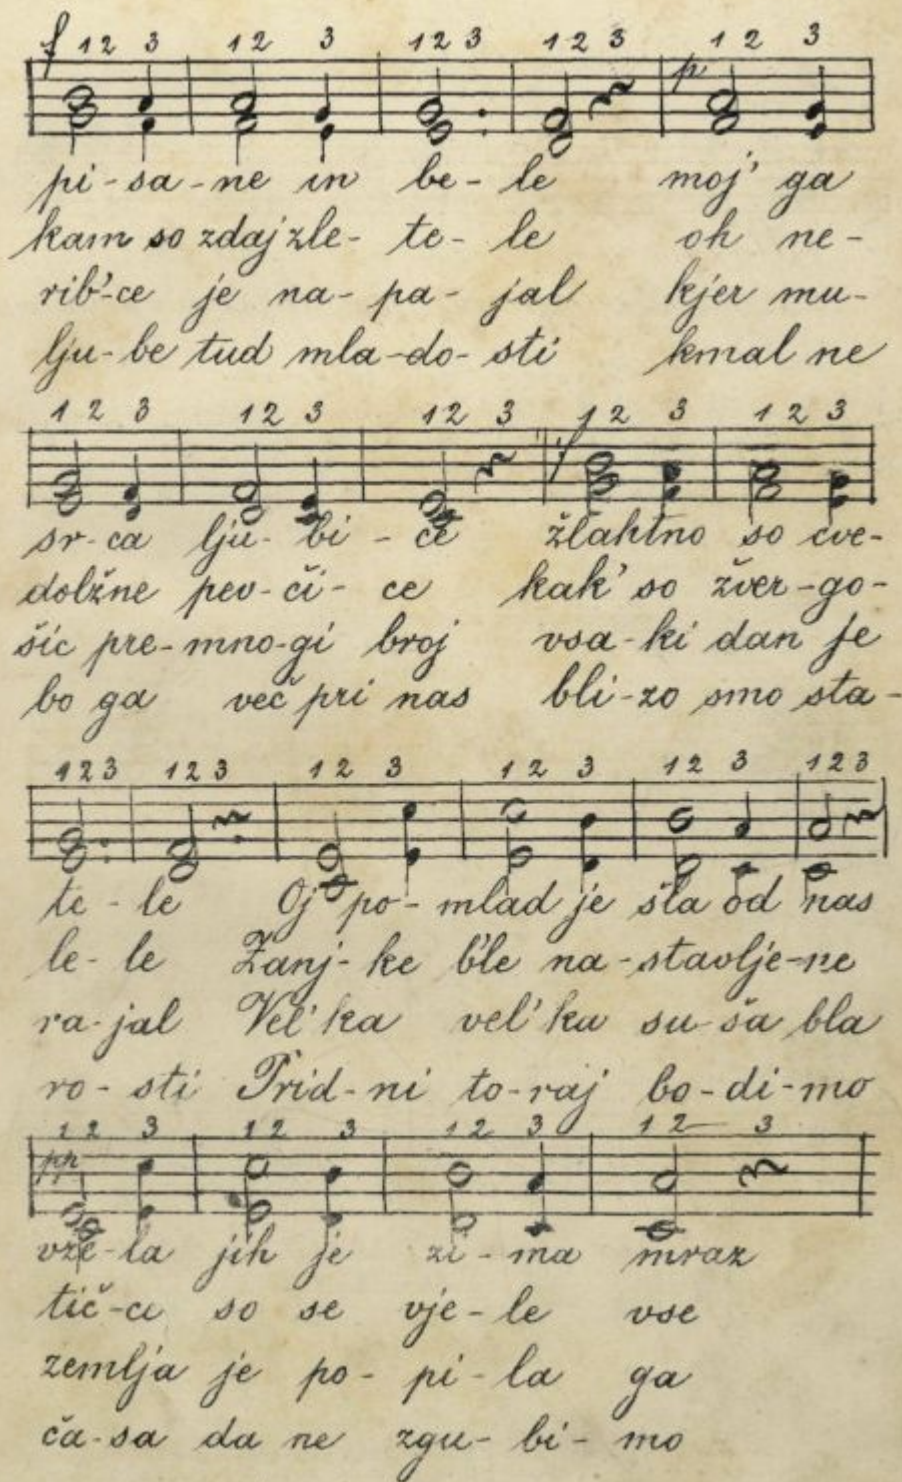 f 1 2 3 1 2 3 1 2 3 1 2 3 p 1 2 3
pi-sa-ne in be-le moj' ga
kam so zdaj zle-te-le oh ne-
rib'-ce je na-pa-jal kjer mu-
lju-be tud mla-do-sti kmal ne
1 2 3 1 2 3 1 2 3 f 1 2 3 1 2 3
sr-ca lju-bi-ce žlahtno so cve-
dolžne pev-či-ce kak' so žver-go-
šic pre-mno-gi broj vsa-ki dan je
bo ga več pri nas bli-zo smo sta-
1 2 3 1 2 3 1 2 3 1 2 3 1 2 3 1 2 3
te-le Oj po-mlad je šla od nas
le-le Zanj-ke b'le na-stavlje-ne
ra-jal Vel'ka vel'ka su-ša bla
ro-sti Prid-ni to-raj bo-di-mo
1 2 3 1 2 3 1 2 3 1 2 3
pp
vze-la jih je zi-ma mraz
tič-ce so se vje-le vse
zemlja je po-pi-la ga
ča-sa da ne zgu-bi-mo